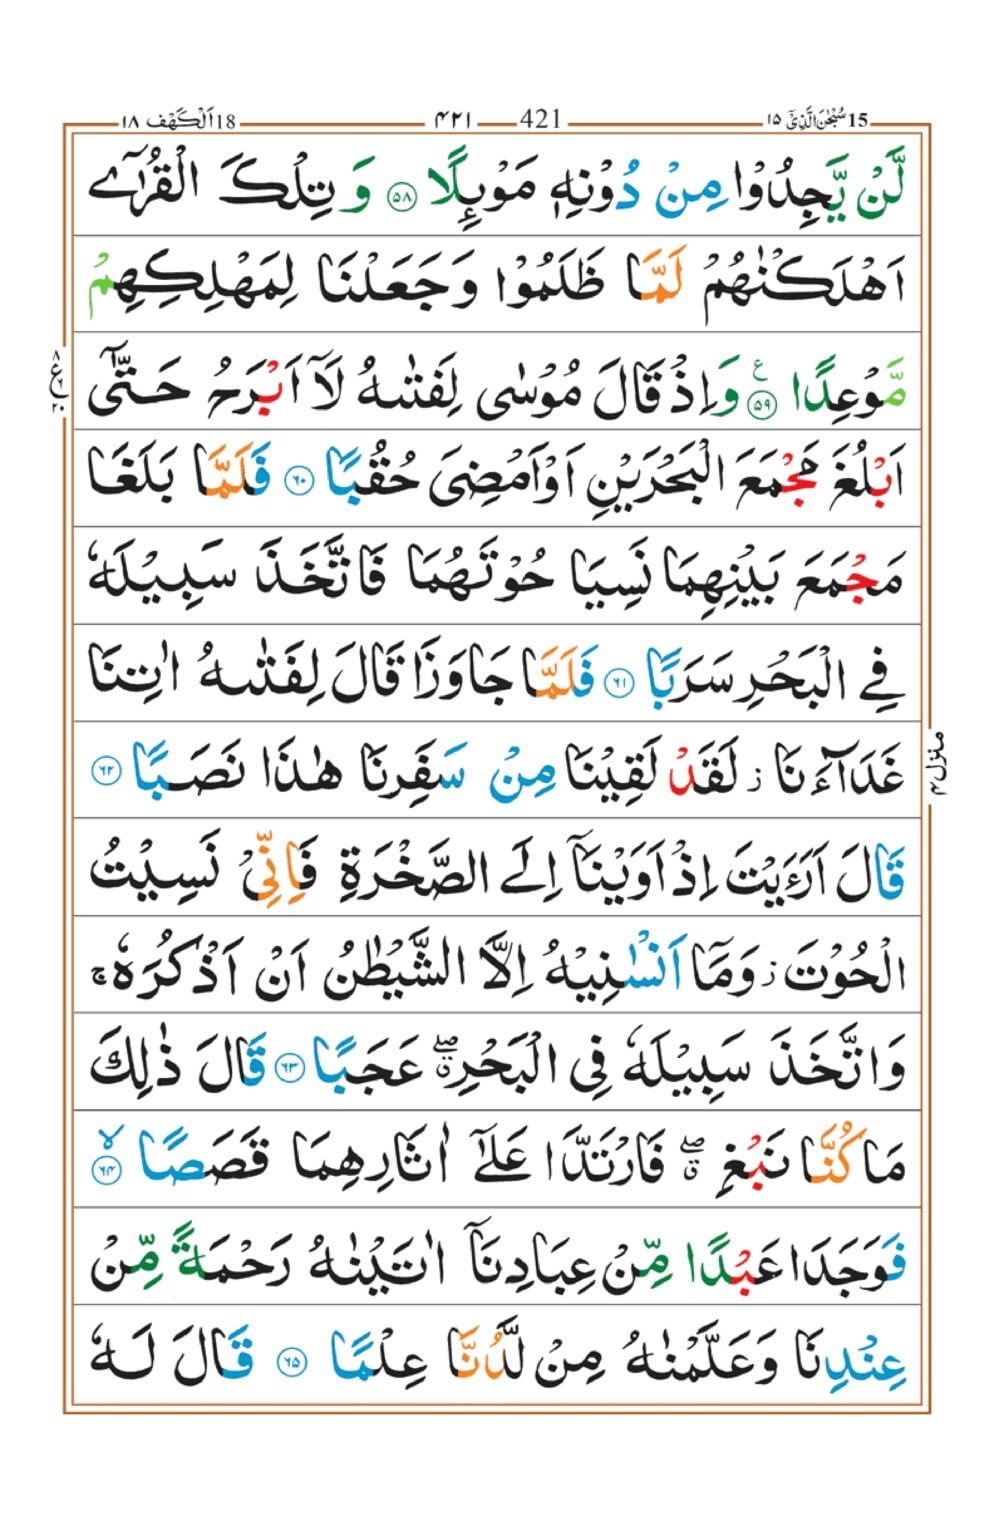 15 سُبْحٰنَ الَّذِیْۤ ۱۵ 421 ۴۲۱ 18 اَلْكَهْف ۱۸
لَّنْ یَّجِدُوْا مِنْ دُوْنِهٖ مَوْىِٕلًا ۝۵۸ وَ تِلْكَ الْقُرٰۤى
اَهْلَكْنٰهُمْ لَمَّا ظَلَمُوْا وَ جَعَلْنَا لِمَهْلِكِهِمْ
مَّوْعِدًا ۝۵۹ ع وَ اِذْ قَالَ مُوْسٰى لِفَتٰىهُ لَاۤ اَبْرَحُ حَتّٰۤى
ع ۸ ۲۰
اَبْلُغَ مَجْمَعَ الْبَحْرَیْنِ اَوْ اَمْضِیَ حُقُبًا ۝۶۰ فَلَمَّا بَلَغَا
مَجْمَعَ بَیْنِهِمَا نَسِیَا حُوْتَهُمَا فَاتَّخَذَ سَبِیْلَهٗ
فِی الْبَحْرِ سَرَبًا ۝۶۱ فَلَمَّا جَاوَزَا قَالَ لِفَتٰىهُ اٰتِنَا
غَدَآءَنَا ز لَقَدْ لَقِیْنَا مِنْ سَفَرِنَا هٰذَا نَصَبًا ۝۶۲
منزل ۴
قَالَ اَرَءَیْتَ اِذْ اَوَیْنَاۤ اِلَى الصَّخْرَةِ فَاِنِّیْ نَسِیْتُ
الْحُوْتَ ز وَ مَاۤ اَنْسٰىنِیْهُ اِلَّا الشَّیْطٰنُ اَنْ اَذْكُرَهٗ ۚ
وَ اتَّخَذَ سَبِیْلَهٗ فِی الْبَحْرِ ۖۗ عَجَبًا ۝۶۳ قَالَ ذٰلِكَ
مَا كُنَّا نَبْغِ ۖۗ فَارْتَدَّا عَلٰۤى اٰثَارِهِمَا قَصَصًا ۝۶۴ ۙ
فَوَجَدَا عَبْدًا مِّنْ عِبَادِنَاۤ اٰتَیْنٰهُ رَحْمَةً مِّنْ
عِنْدِنَا وَ عَلَّمْنٰهُ مِنْ لَّدُنَّا عِلْمًا ۝۶۵ قَالَ لَهٗ